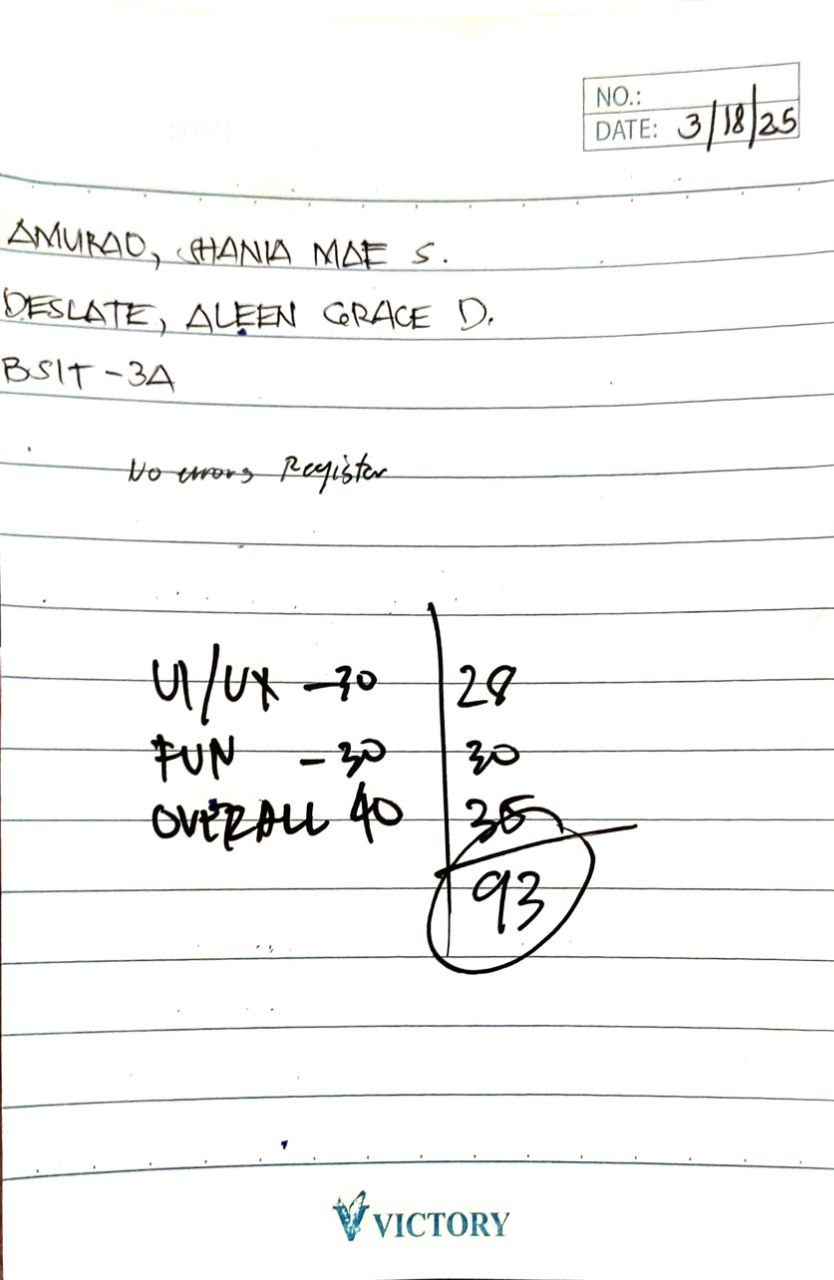 NO.:
DATE: 3/18/25
AMURAO, SHANIA MAE S.
DESLATE, ALEEN GRACE D.
BSIT - 3A
No errors Register
UI/UX - 30 28
FUN - 30 30
OVERALL 40 35
93
VICTORY